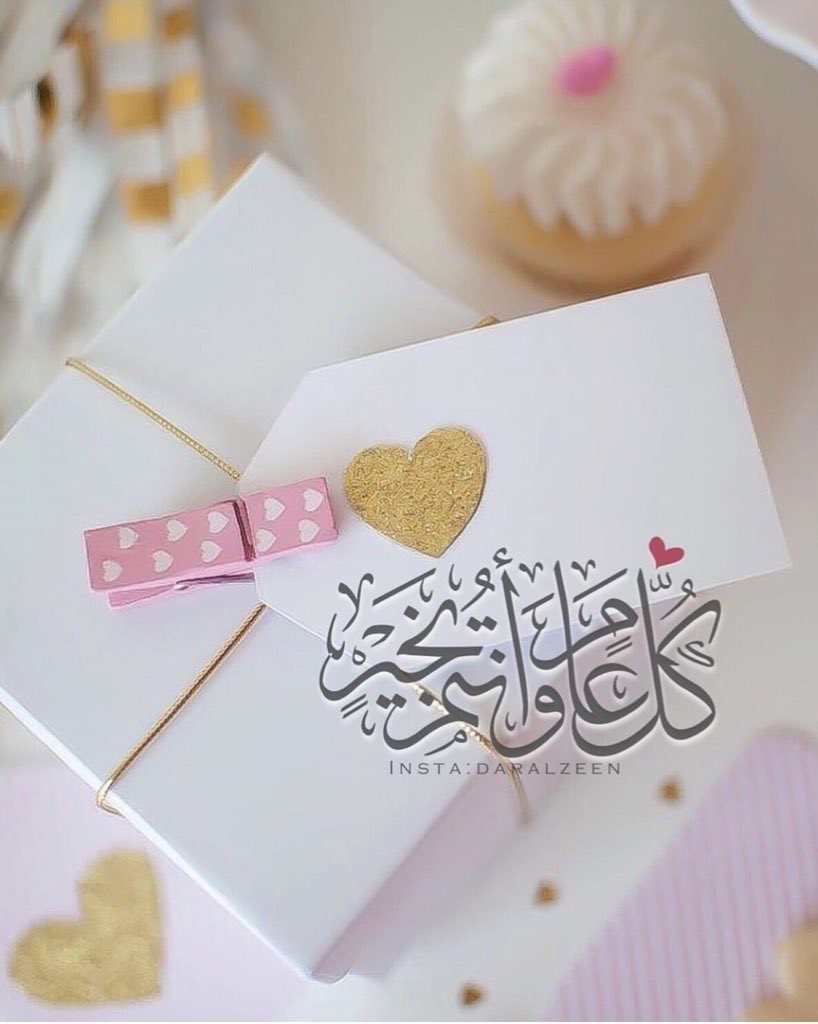 كُلُّ عَامٍ وَأَنتُم بِخَيْرٍ
INSTA:DARALZEEN